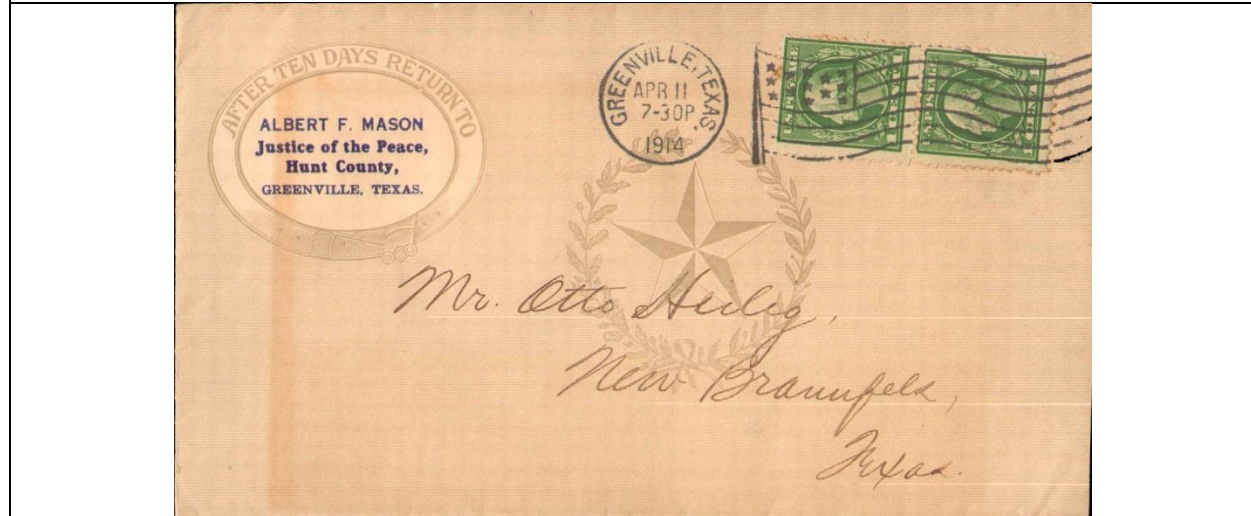 AFTER TEN DAYS RETURN TO
ALBERT F. MASON
Justice of the Peace,
Hunt County,
GREENVILLE, TEXAS.
GREENVILLE, TEXAS.
APR 11
7-30P
1914
U.S. POSTAGE
1 CENT 1
U.S. POSTAGE
Mr. Otto Heilig,
New Braunfels,
Texas.